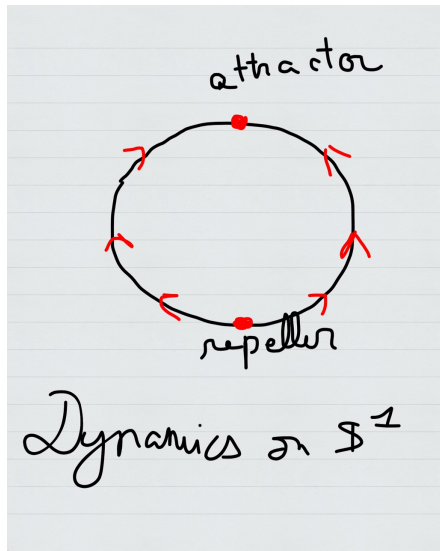 attractor
repeller
Dynamics on $^1